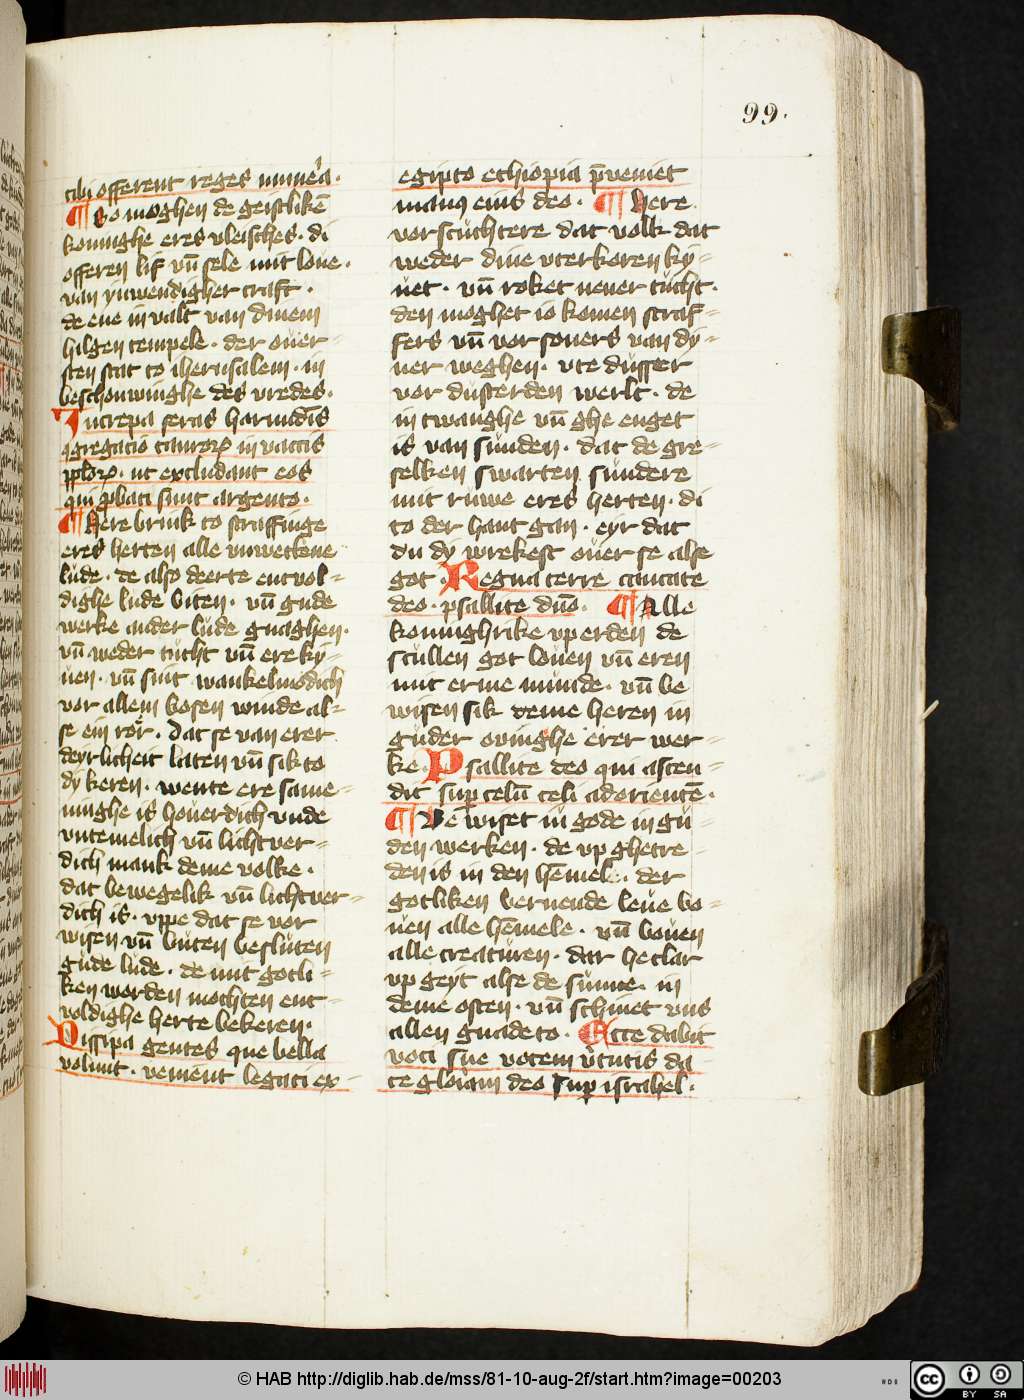 99.
tibi offerent reges mun̄era.
¶ So moghen de geistlikē
koninghe eres vleisches. di
offeren lif vn̄ sele mit loue.
van ynwendigher craft.
de ene in valt van dinem
hilgen tempele. der ouer-
sten stat to iherusalem. in
beschouwinghe des vredes.
Increpa feras harundīs
ꝯgregacio tauroꝝ in vaccis
ppl̄oꝝ. ut excludant eos
qui ꝓbati sunt argento.
¶ Here brink to straffinge
eres herten alle vnweckene
lude. de also deerte entvol-
dighe lude biten. vn̄ gude
werke ander lude gnaghen.
vn̄ weder tucht vn̄ ere ky-
uen. vn̄ sint wankelmodich
vor allem bosen winde al-
se ein rör. dat se van erer
deyrlicheit laten vn̄ sik to
dy keren. wente ere same-
ninghe is houerdich vnde
vntemelich vn̄ lichtver-
dich mank deme volke.
dat bewegelik vn̄ lichtver-
dich is. vppe dat se vor
wisen vn̄ buten besluten
gude lude. de mit gotli-
ken worden mochten ent-
voldighe herte bekeren.
Dissipa gentes que bella
volunt. venient legati ex
egipto ethiopia p̄veniet
manꝯ eius deo. ¶ Here
vorstuchtere dat volk dat
weder dine vterkoren ky-
uet. vn̄ roket nener tucht.
den moghet io komen straf-
fers vn̄ vorstouers van dy-
ner weghen. vte duster
vor dusterden werlt. de
in twanghe vn̄ ghe enget
is van sunden. dat de gre-
selken swarten sundere
mit ruwe eres herten. di
to der hant gan. eyr dat
du dy wrekest ouer se alse
got. Regna terre cantate
deo. psallite dn̄o. ¶ Alle
koninghrike vp erden de
scullen got louen vn̄ eren
mit erme munde. vn̄ be
wisen sik deme heren in
guder ouinghe erer wer-
ke. Psallite deo qui ascen-
dit sup̱ celū celi ad orientē.
¶ De wiset in gode in gu-
den werken. de vp ghetre-
den is in den hēmele. der
gotliken bernende leue bo-
uen alle hēmele. vn̄ bouen
alle creaturen. dar he clar
vp geyt alse de sunne. in
deme osten. vn̄ schinet vns
allen gnade to. Ecce dabit
voci sue vocem v̄tutis da
te gloriam deo sup̱ israhel.
© HAB http://diglib.hab.de/mss/81-10-aug-2f/start.htm?image=00203
HAB
cc
BY SA